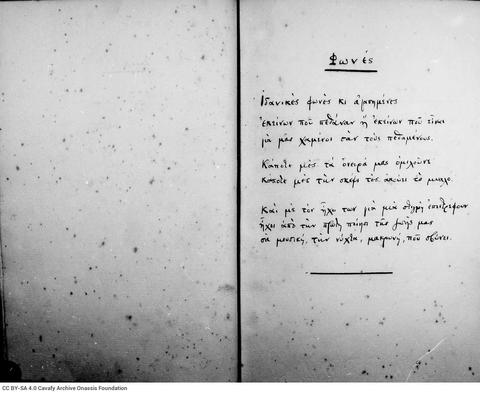 Φωνές
Ιδανικές φωνές κι αγαπημένες
εκείνων που πεθάναν ή εκείνων που είναι
για μας χαμένοι σαν τους πεθαμένους.
Κάποτε μες τα όνειρά μας ομιλούνε
κάποτε μες την σκέψι τες ακούει το μυαλό.
Και με τον ήχο των για μια στιγμή επιστρέφουν
ήχοι από την πρώτη ποίησι της ζωής μας
σα μουσική, την νύχτα, μακρυνή, που σβύνει.
CC BY-SA 4.0 Cavafy Archive Onassis Foundation